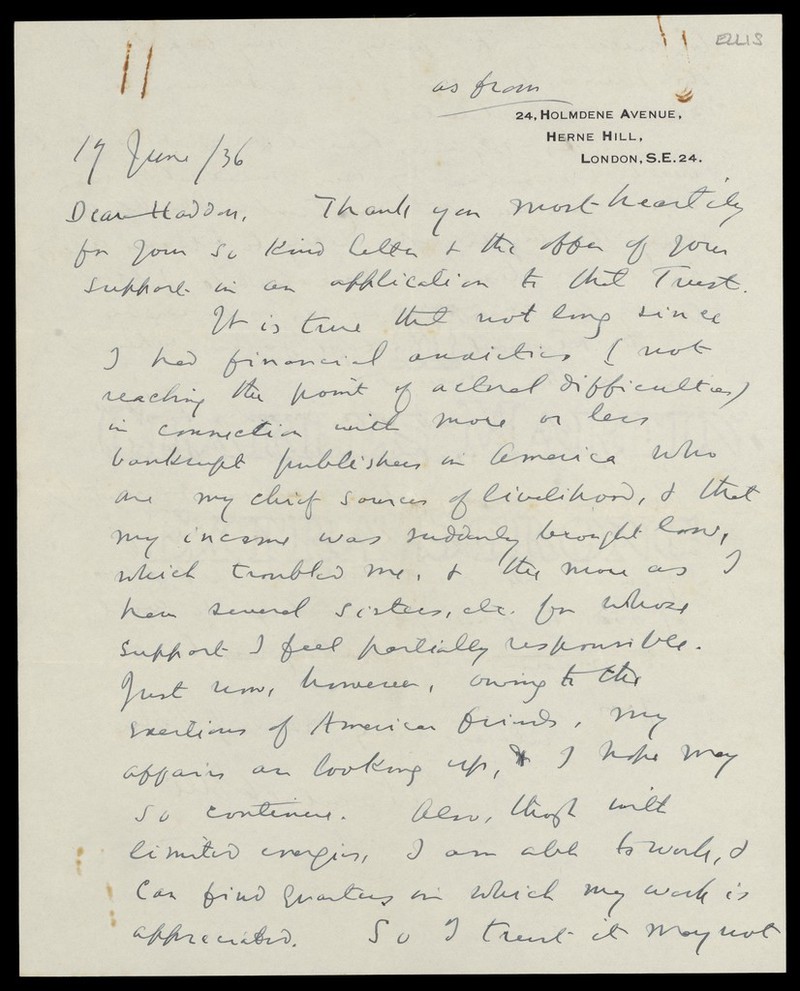 ELLIS
as from
24, HOLMDENE AVENUE,
HERNE HILL,
LONDON, S.E.24.
19 June /36
Dear Haddon, Thank you most heartily
for your so kind letter & the offer of your
support in an application to that Trust.
It is true that not long since
I had financial anxieties (not
reaching the point of actual difficulties)
in connection with more or less
bankrupt publishers in America who
are my chief sources of livelihood, & that
my income was suddenly brought low,
which troubled me, & the more as I
have several sisters, etc. for whose
support I feel partially responsible.
Just now, however, owing to the
exertions of American friends, my
affairs are looking up, & I hope may
so continue. Also, though with
limited energies, I am able to work, &
can find quarters in which my work is
appreciated. So I trust it may not